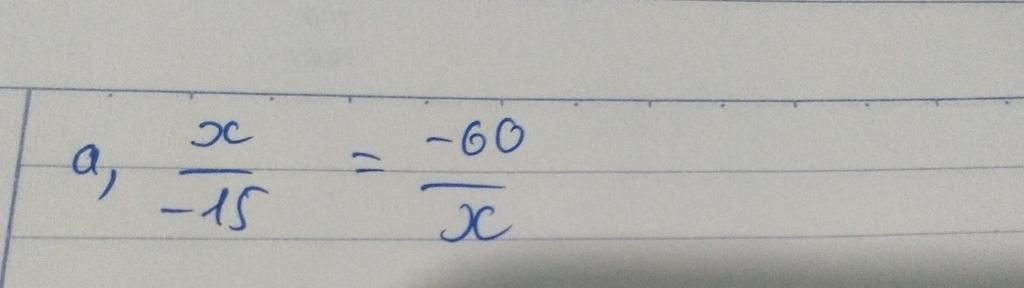 a, x/-15 = -60/x